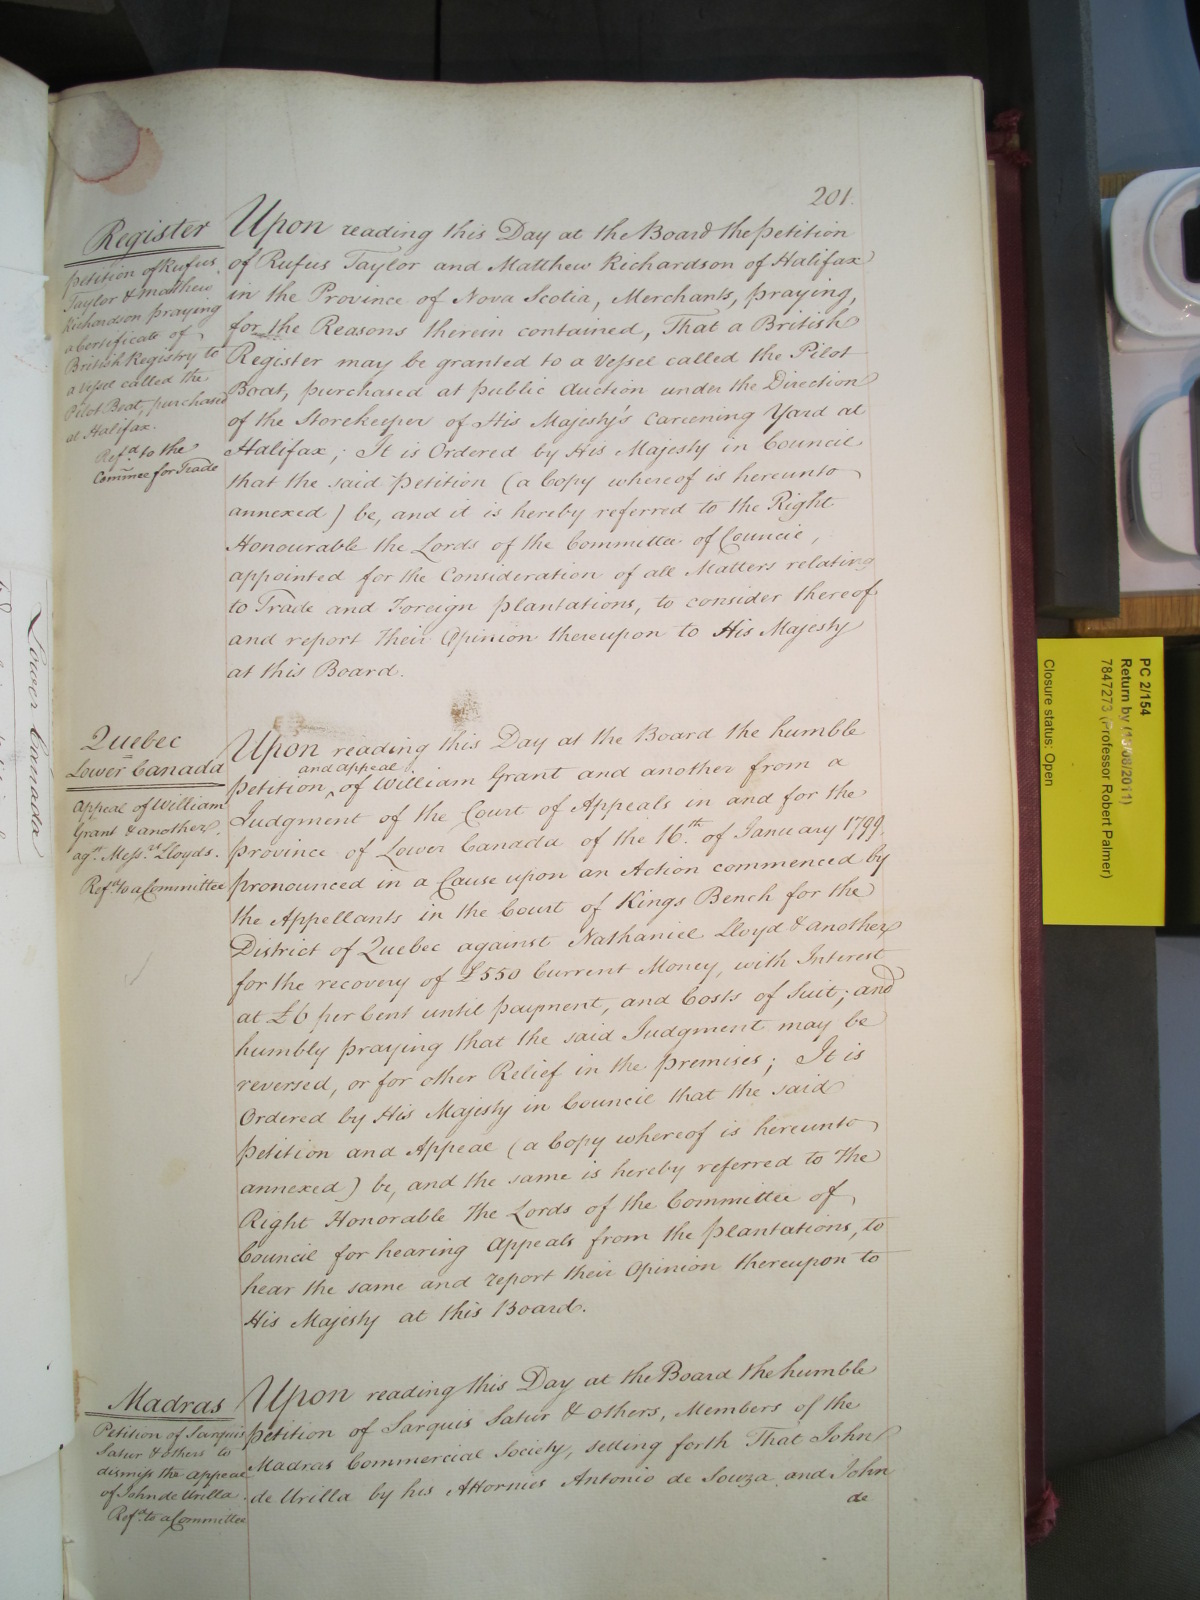 201.
Register
Petition of Rufus
Taylor & Matthew
Richardson praying
a Certificate of
British Registry to
a Vessel called the
Pilot Boat, purchased
at Halifax.
Ref.d to the
Commee for Trade
Upon reading this Day at the Board the Petition
of Rufus Taylor and Matthew Richardson of Halifax
in the Province of Nova Scotia, Merchants, praying,
for the Reasons therein contained, That a British
Register may be granted to a Vessel called the Pilot
Boat, purchased at public Auction under the Direction
of the Storekeeper of His Majesty's Careening Yard at
Halifax; It is Ordered by His Majesty in Council
that the said Petition (a Copy whereof is hereunto
annexed) be, and it is hereby referred to the Right
Honourable the Lords of the Committee of Council,
appointed for the Consideration of all Matters relating
to Trade and Foreign Plantations, to consider thereof
and report their Opinion thereupon to His Majesty
at this Board.
Quebec
Lower Canada
Appeal of William
Grant & another
agt. Messrs Lloyds.
Ref.d to a Committee
Upon reading this Day at the Board the humble
and appeal
Petition ^ of William Grant and another from a
Judgment of the Court of Appeals in and for the
Province of Lower Canada of the 16.th of January 1799.
pronounced in a Cause upon an Action commenced by
the Appellants in the Court of Kings Bench for the
District of Quebec against Nathaniel Lloyd & another
for the recovery of £550 Current Money, with Interest
at £6 per Cent until payment, and Costs of Suit; and
humbly praying that the said Judgment may be
reversed, or for other Relief in the premises; It is
Ordered by His Majesty in Council that the said
Petition and Appeal (a Copy whereof is hereunto
annexed) be, and the same is hereby referred to the
Right Honorable the Lords of the Committee of
Council for hearing Appeals from the Plantations, to
hear the same and report their Opinion thereupon to
His Majesty at this Board.
Madras
Petition of Sarquis
Satur & others to
dismiss the appeal
of John de Urilla.
Ref.d to a Committee
Upon reading this Day at the Board the humble
Petition of Sarquis Satur & others, Members of the
Madras Commercial Society, setting forth That John
de Urilla by his Attornies Antonio de Souza and John
de
Lower Canada
PC 2/154
Return by (13/08/2011)
7847273 (Professor Robert Palmer)
Closure status: Open